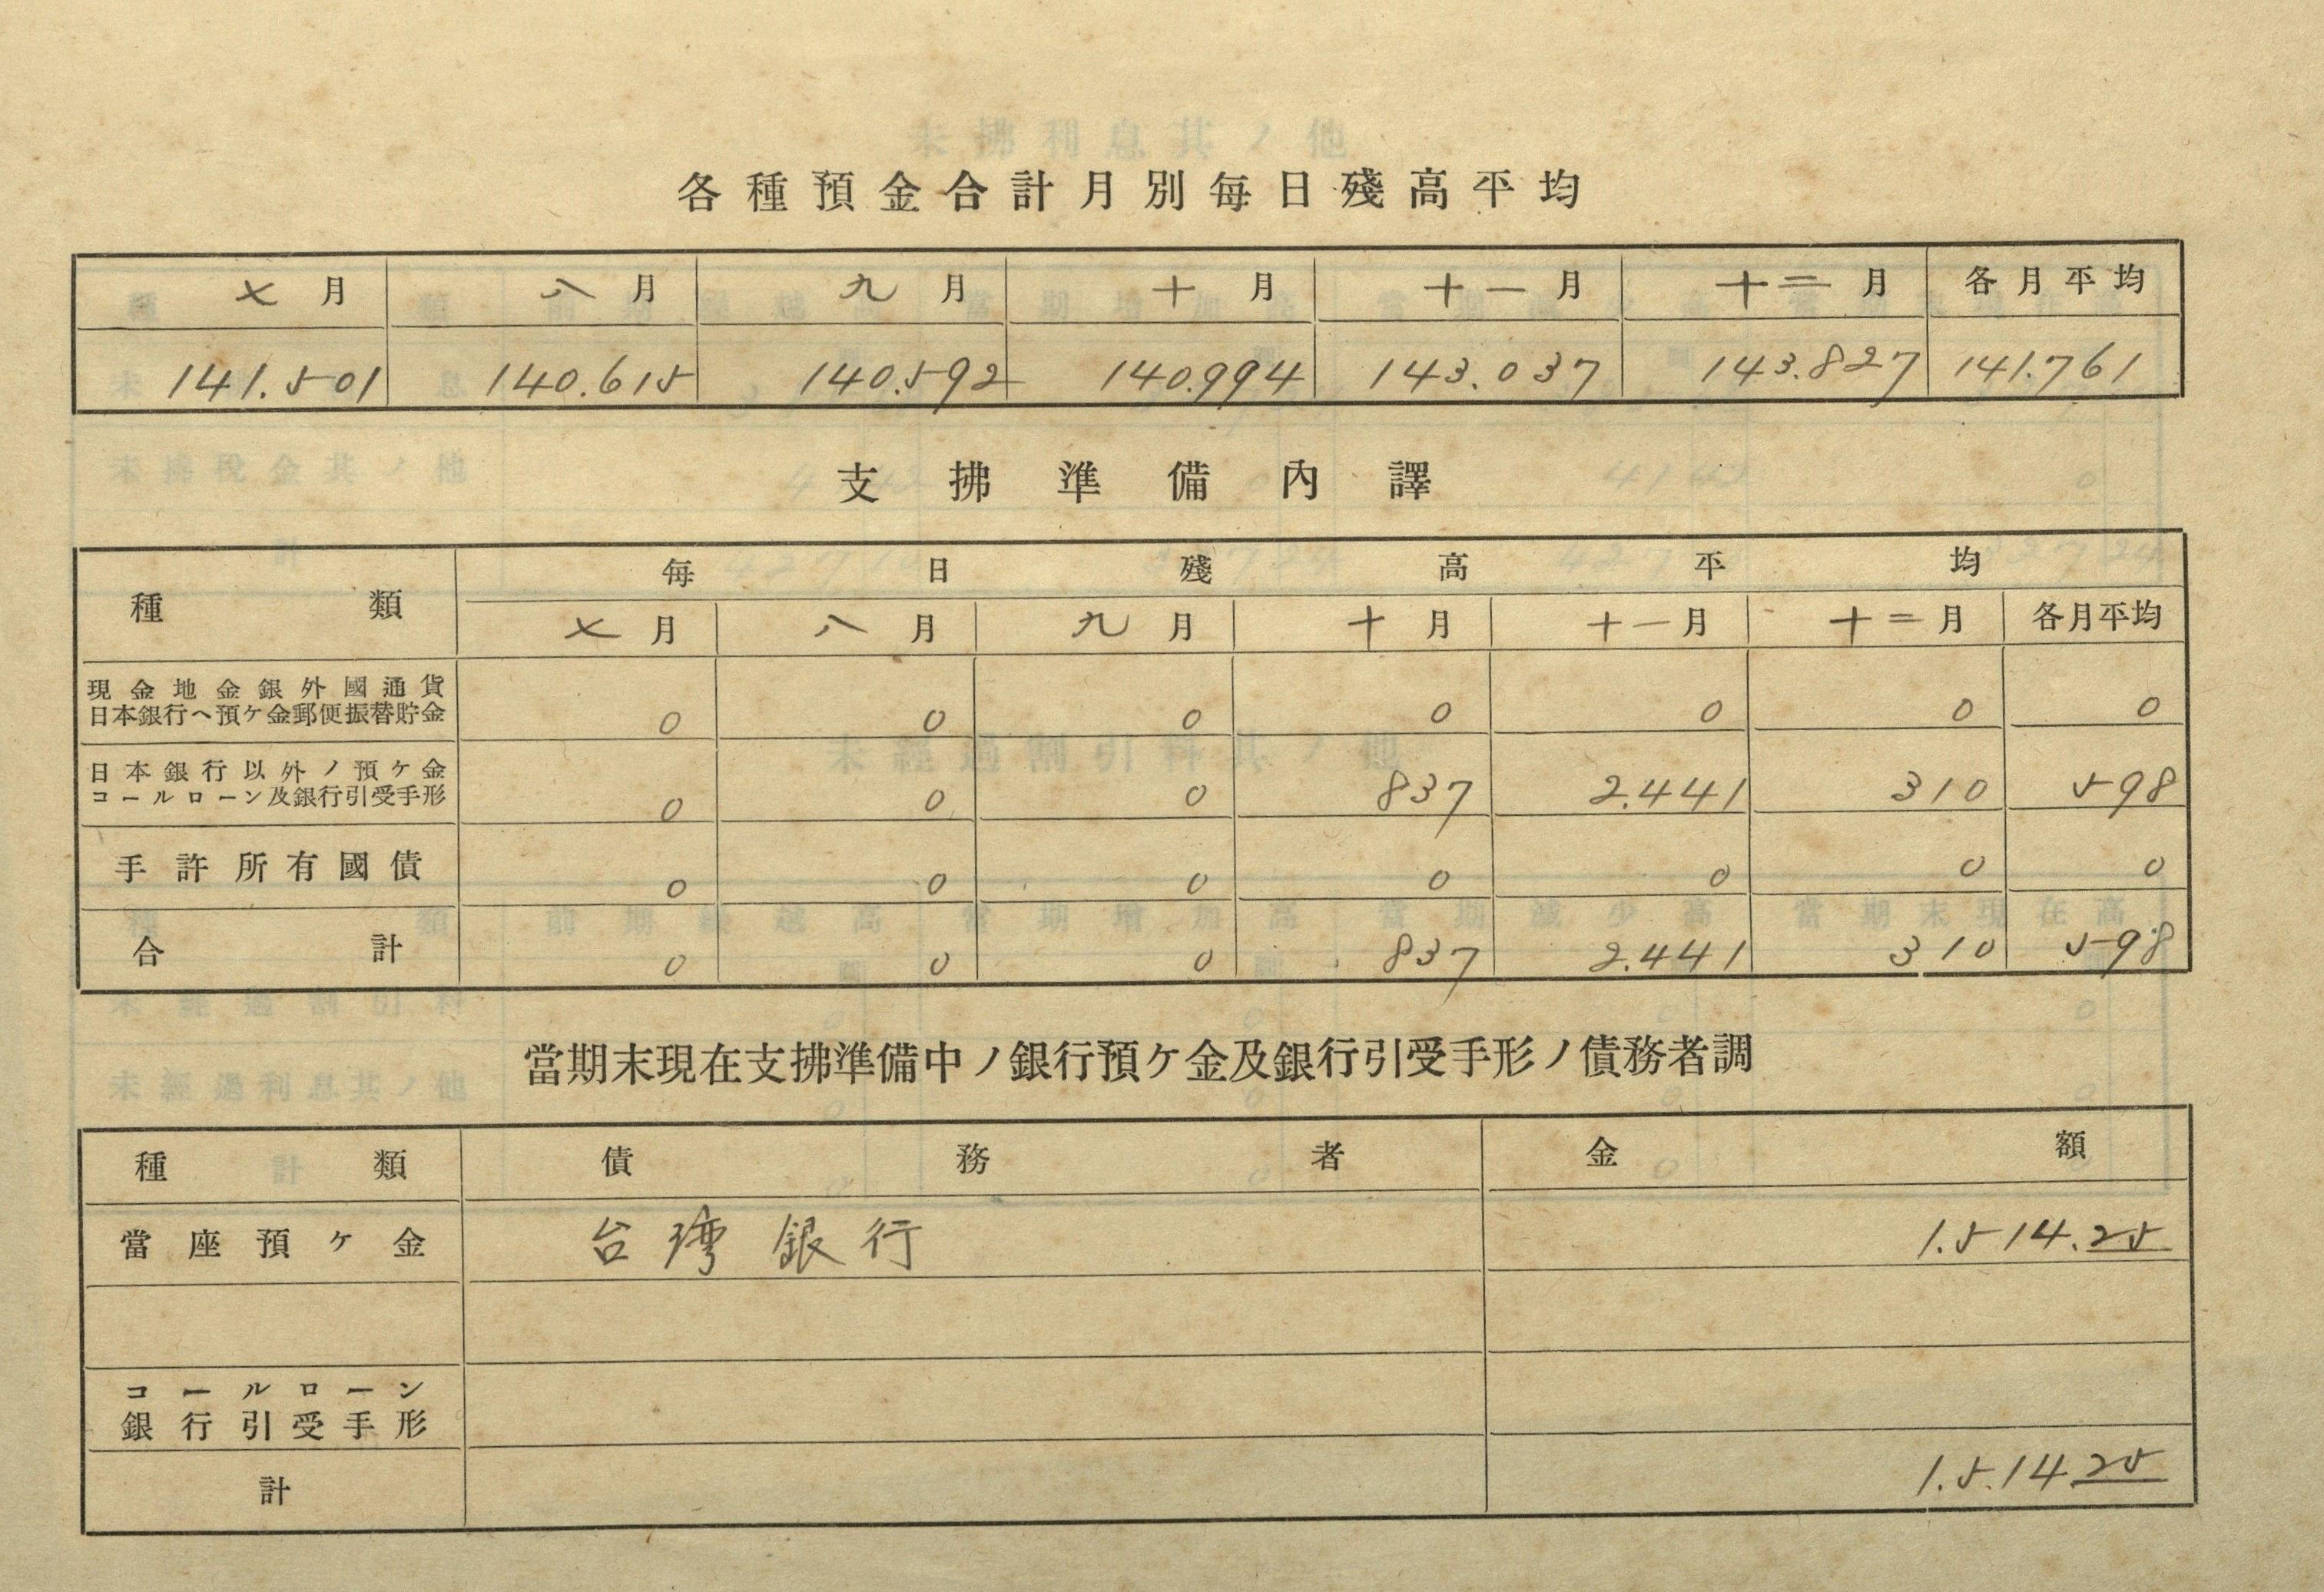 各種預金合計月別每日殘高平均
七月 八月 九月 十月 十一月 十二月 各月平均
141.501 140.615 140.592 140.994 143.037 143.827 141.761
支拂準備內譯
種類 每日殘高平均
七月 八月 九月 十月 十一月 十二月 各月平均
現金地金銀外國通貨
日本銀行ヘ預ケ金郵便振替貯金 0 0 0 0 0 0 0
日本銀行以外ノ預ケ金
コールローン及銀行引受手形 0 0 0 837 2.441 310 598
手許所有國債 0 0 0 0 0 0 0
合計 0 0 0 837 2.441 310 598
當期末現在支拂準備中ノ銀行預ケ金及銀行引受手形ノ債務者調
種類 債務者 金額
當座預ケ金 台湾銀行 1.514.25
コールローン
銀行引受手形
計 1.514.25